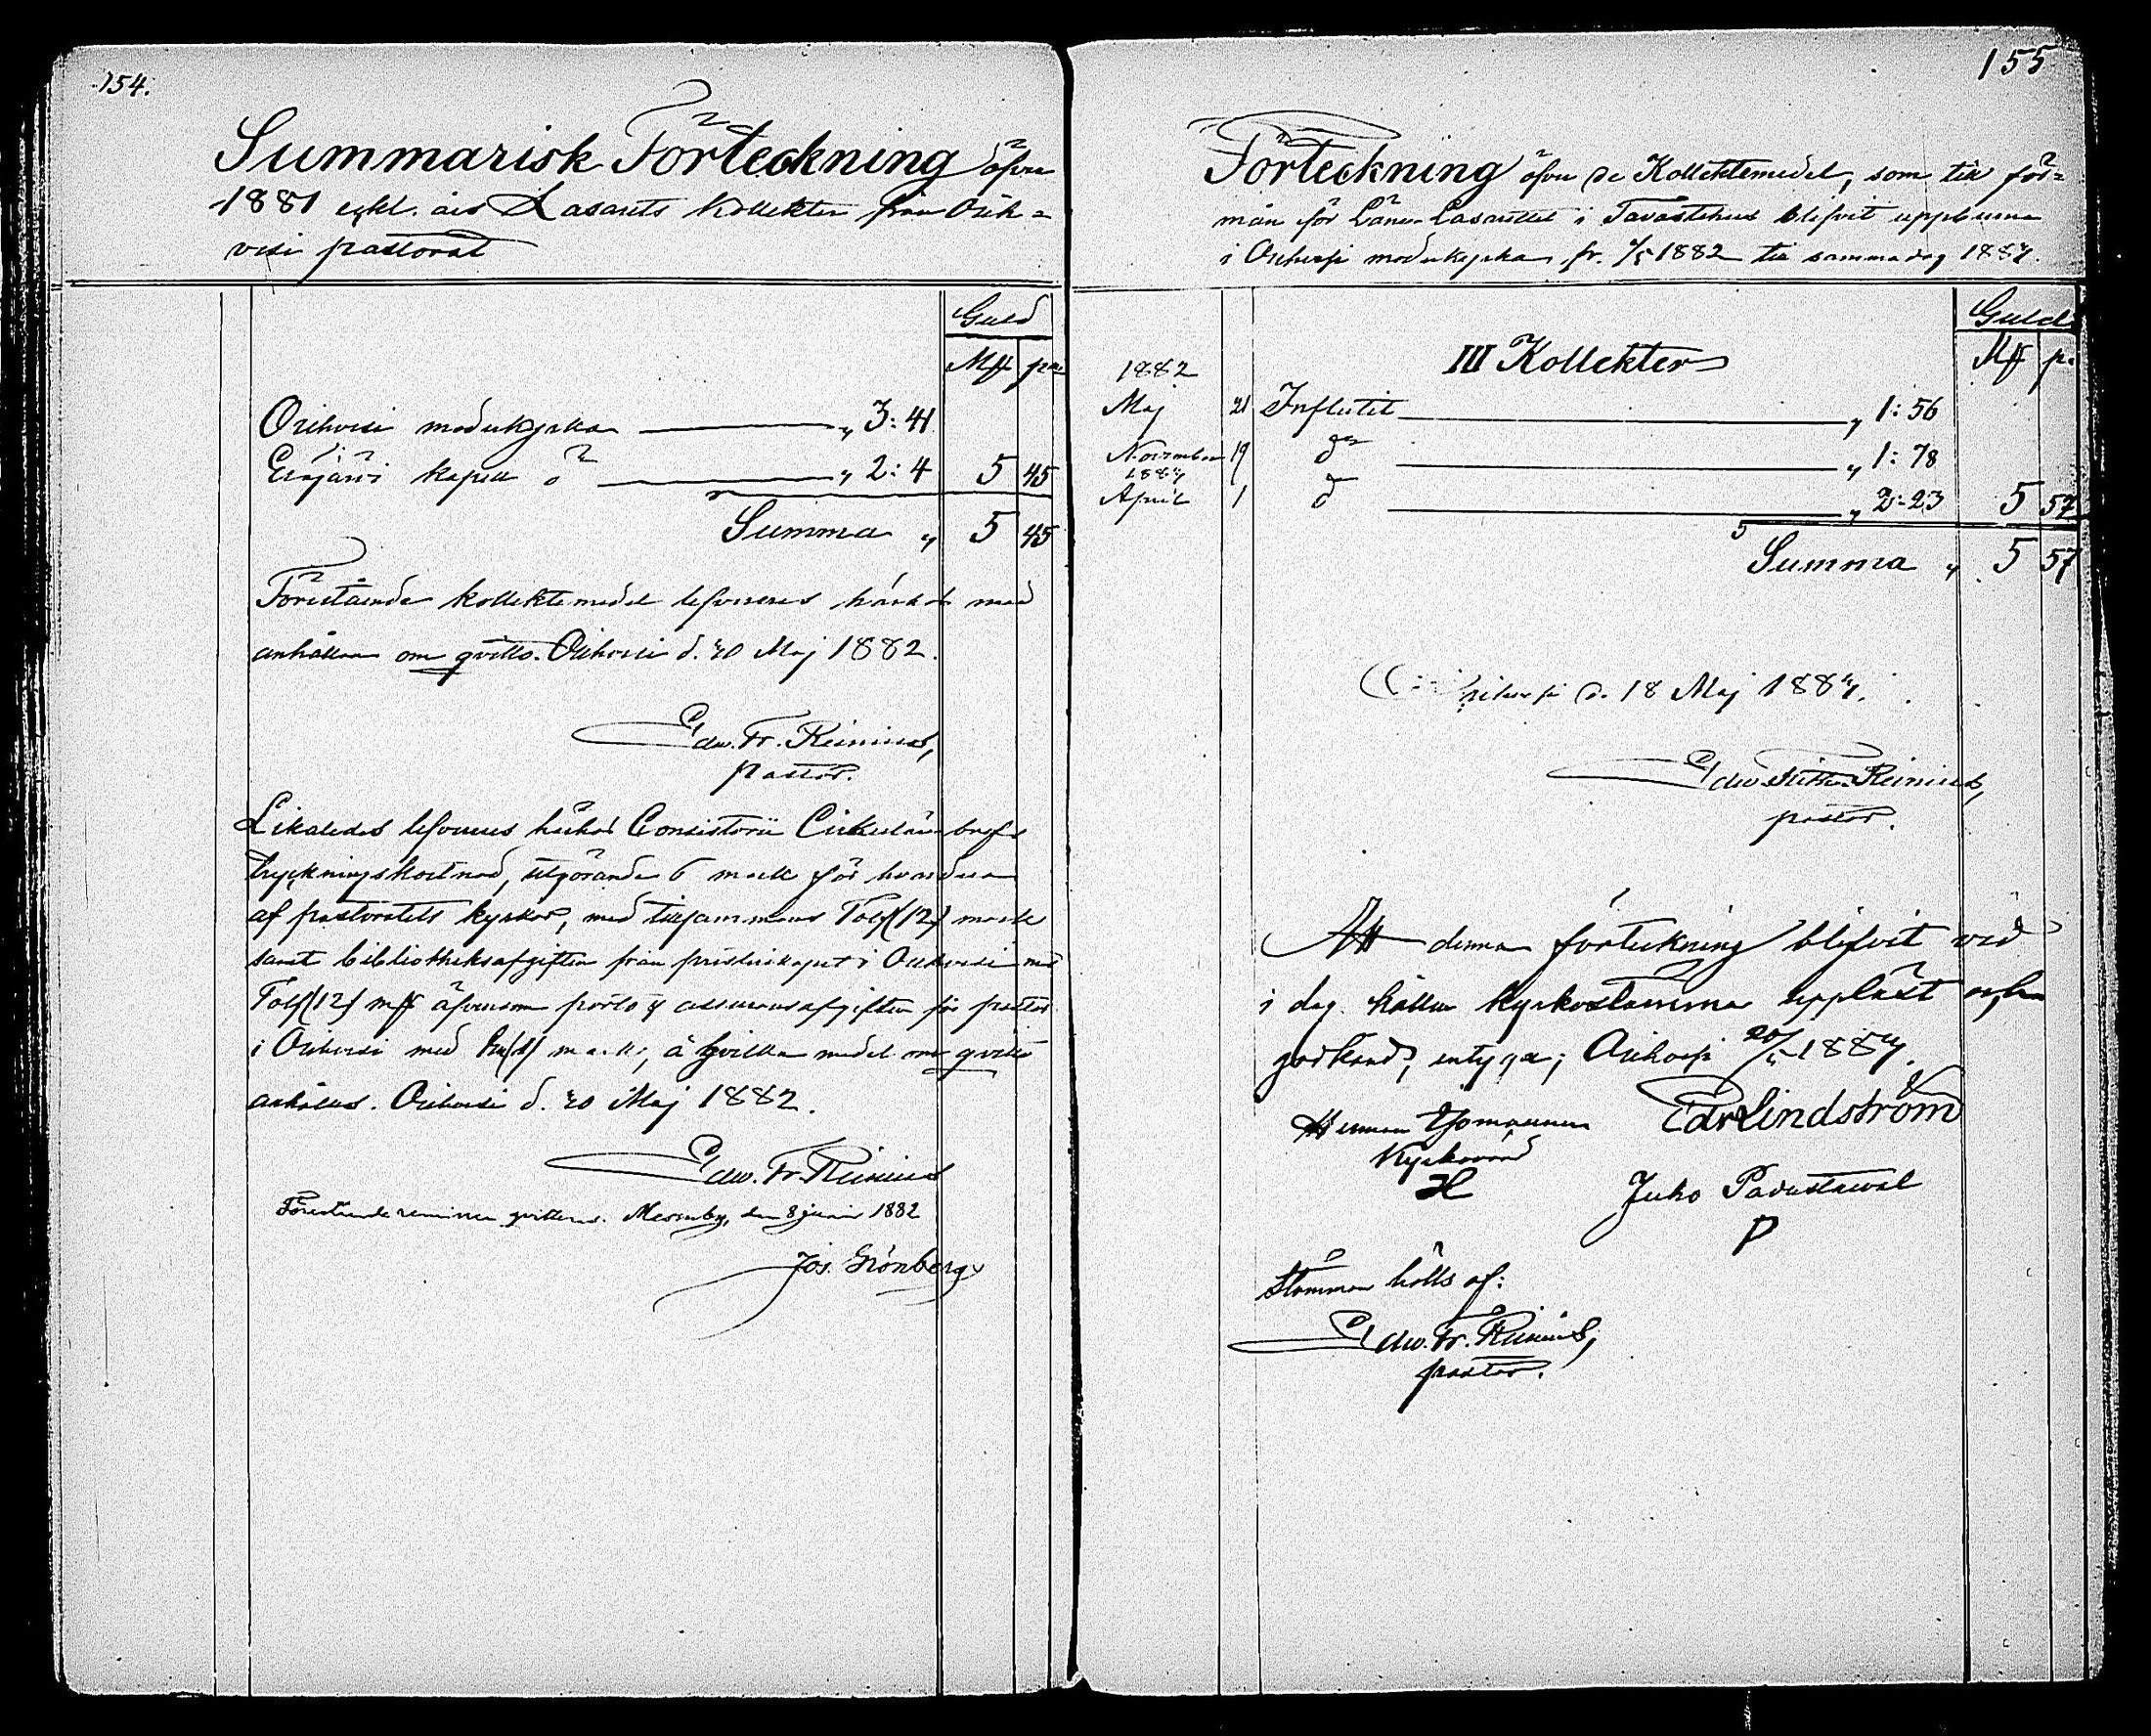 154.
Summarisk Förteckning öfver
1881 eckl. års Lasaretts kollekter från Orih=
vesi pastorat
Guld
Mk pni
Orihvesi moderkyrka „ 3:41
Eräjärvi kapell d:o „ 2:4 5 45
Summa „ 5 45
Förestående kollektmedel lefvereras härhos med
anhållan om qvitto. Orihvesi d. 20 Maj 1882.
Edw. Fr. Reinius,
pastor.
Likaledes lefvereras härhos Consistorii Cirkulärbrefs
tryckningskostnad, utgörande 6 mark för hvardera
af pastoratets kyrkor, med tillsammans Tolf (12) mark
samt bibliotheksafgiften från presterskapet i Orihvesi med
Tolf (12) mk äfvensom porto & assuransafgiften för pastor
i Orihvesi med mark, å hvilka medel om qvitto
anhålles. Orihvesi d. 20 Maj 1882.
Edw. Fr. Reinius
Förestående remisser qvitteras. Messuby, den 8 juni 1882
Jos. Grönberg
155
Förteckning öfver de Kollektmedel, som till för=
mån för Läne Lasarettet i Tavastehus blifvit uppburna
i Orihvesi moderkyrka fr. 1/5 1882 till samma dag 1883.
Guld
Mk p.
III Kollekter
1882
Maj 21 Influtit „ 1:56
November 19 d:o „ 1:78
1883
April 1 d:o „ 2:23 5 57
Summa „ 5 57
Orihvesi d. 18 Maj 1883.
Edw. Reinius,
pastor.
Att denna förteckning blifvit vid
i dag hållen kyrkostämma uppläst och
godkänd, intyga; Orihvesi 20/5 1883.
Herman Edv Lindström
Kyrkovärd
H Juho
P
Stämman hölls af:
Edw. Fr. Reinius,
pastor.